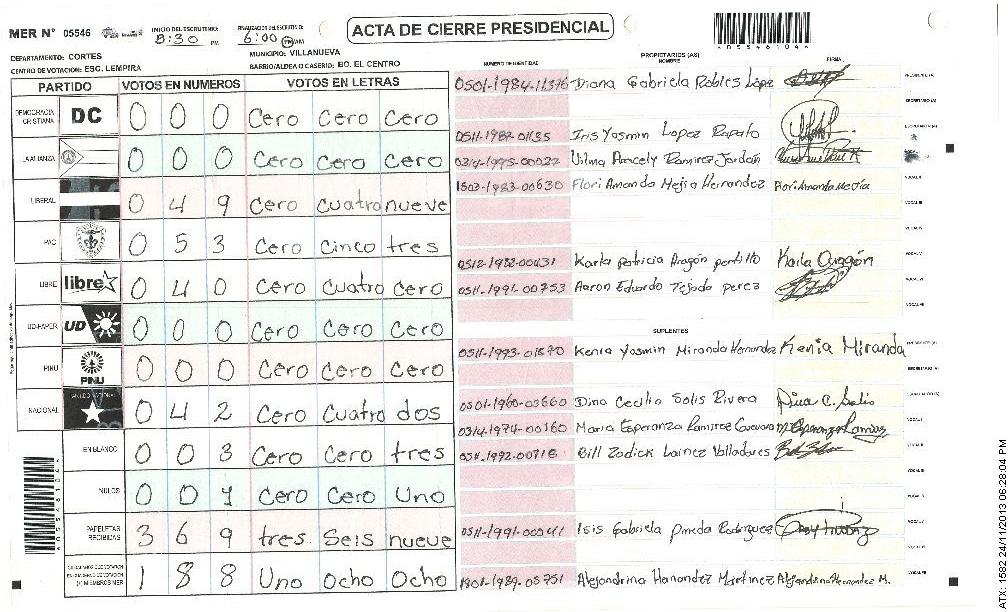 MER N° 05546 INICIO DEL ESCRUTINIO: 8:30 PM FINALIZACION DEL ESCRUTINIO: 6:00 PM/AM ACTA DE CIERRE PRESIDENCIAL
DEPARTAMENTO: CORTES MUNICIPIO: VILLANUEVA
CENTRO DE VOTACION: ESC. LEMPIRA BARRIO/ALDEA O CASERIO: BO. EL CENTRO
PARTIDO VOTOS EN NUMEROS VOTOS EN LETRAS
DEMOCRACIA CRISTIANA DC 0 0 0 Cero Cero Cero
LA ALIANZA 0 0 0 Cero Cero Cero
LIBERAL 0 4 9 Cero Cuatro nueve
PAC 0 5 3 Cero Cinco tres
LIBRE libre 0 4 0 Cero Cuatro Cero
UD-FAPER UD 0 0 0 Cero Cero Cero
PINU PINU 0 0 0 Cero Cero Cero
NACIONAL 0 4 2 Cero Cuatro dos
EN BLANCO 0 0 3 Cero Cero tres
NULOS 0 0 1 Cero Cero Uno
PAPELETAS RECIBIDAS 3 6 9 tres Seis nueve
1 8 8 Uno Ocho Ocho
NUMERO DE IDENTIDAD PROPIETARIOS (AS) NOMBRE FIRMA
0501-1984-11376 Diana Gabriela Robles López
0511-1982-01135 Iris Yasmin Lopez
0314-1995-00022 Vilma Aracely Ramirez Jordán
1503-1983-00630 Flori Amanda Mejia Hernandez Flori Amanda Mejia
0512-1982-00431 Karla Patricia Aragón portillo Karla Aragón
0511-1991-00753 Aaron Eduardo Tejada perez
SUPLENTES
0511-1993-01870 Kenia Yasmin Miranda Hernandez Kenia Miranda
0501-1960-03660 Dina Cecilia Solis Rivera Dina C. Solis
0314-1974-00160 Maria Esperanza Ramirez
0511-1992-00716 Bill Zadick Lainez Valladares
0511-1991-00041 Isis Gabriela Pineda Rodriguez
1801-1989-05751 Alejandrina Hernandez Martinez Alejandrina Hernandez M.
ATX: 1582 24/11/2013 06:28:04 PM